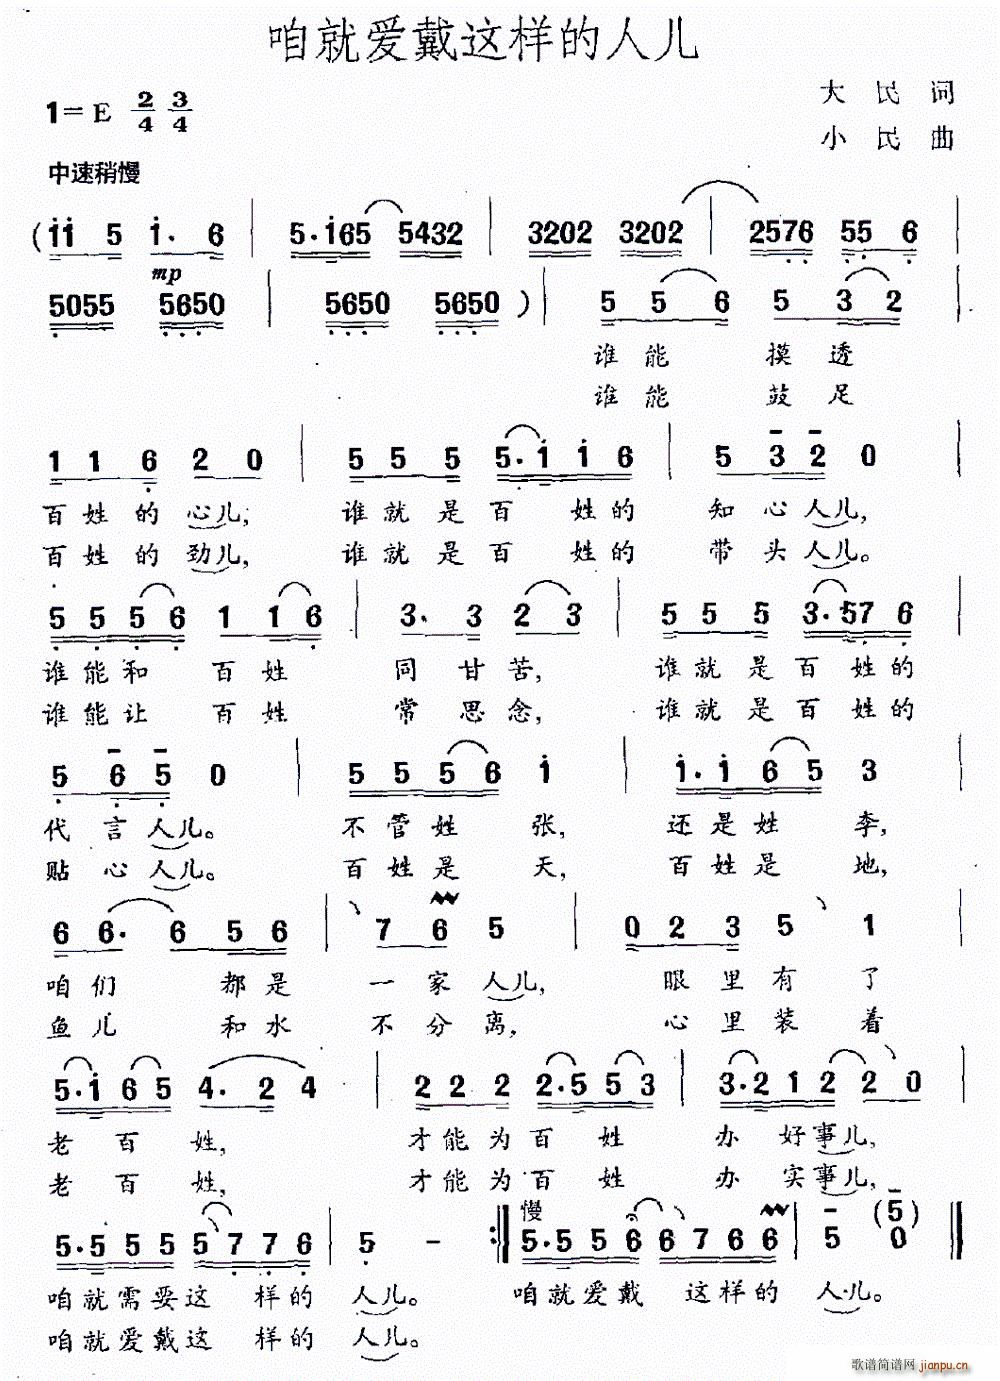 咱就爱戴这样的人儿
1=E 2/4 3/4
大民词
小民曲
中速稍慢
(i i 5 i· 6 | 5·i65 5432 | 3202 3202 | 2576 55 6 |
mp
5055 5650 | 5650 5650 ) | 5 5 6 5 3 2 |
谁能 摸透
谁能 鼓足
1 1 6 2 0 | 5 5 5 5·i i 6 | 5 3 2 0 |
百姓的心儿; 谁就是百姓的 知心人儿,
百姓的劲儿, 谁就是百姓的 带头人儿。
5 5 5 6 1 1 6 | 3· 3 2 3 | 5 5 5 3·57 6 |
谁能和百姓 同甘苦, 谁就是百姓的
谁能让百姓 常思念, 谁就是百姓的
5 6 5 0 | 5 5 5 6 i | i·i 6 5 3 |
代言人儿。 不管姓张, 还是姓李,
贴心人儿。 百姓是天, 百姓是地,
6 6· 6 5 6 | 7 6 5 | 0 2 3 5 1 |
咱们都是 一家人儿, 眼里有了
鱼儿和水 不分离, 心里装着
5·i 6 5 4· 2 4 | 2 2 2 2·5 5 3 | 3·2 1 2 2 0 |
老百姓, 才能为百姓 办好事儿,
老百姓, 才能为百姓 办实事儿,
慢
5·5 5 5 5 7 7 6 | 5 - :‖ 5·5 5 6 6 7 6 6 | 5 (5) 0 ‖
咱就需要这样的 人儿。 咱就爱戴 这样的 人儿。
咱就爱戴这样的 人儿。
歌谱简谱网 jianpu.cn